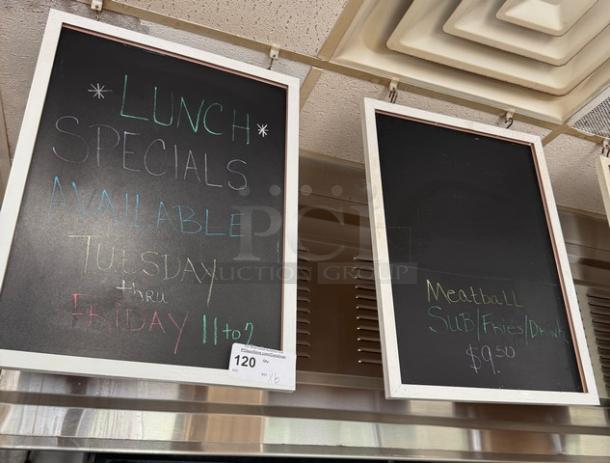 *LUNCH*
SPECIALS
AVAILABLE
TUESDAY
thru
FRIDAY 11 to 2
120
x6
Meatball
SUB/Fries/Drink
$9.50
PCI
AUCTION GROUP